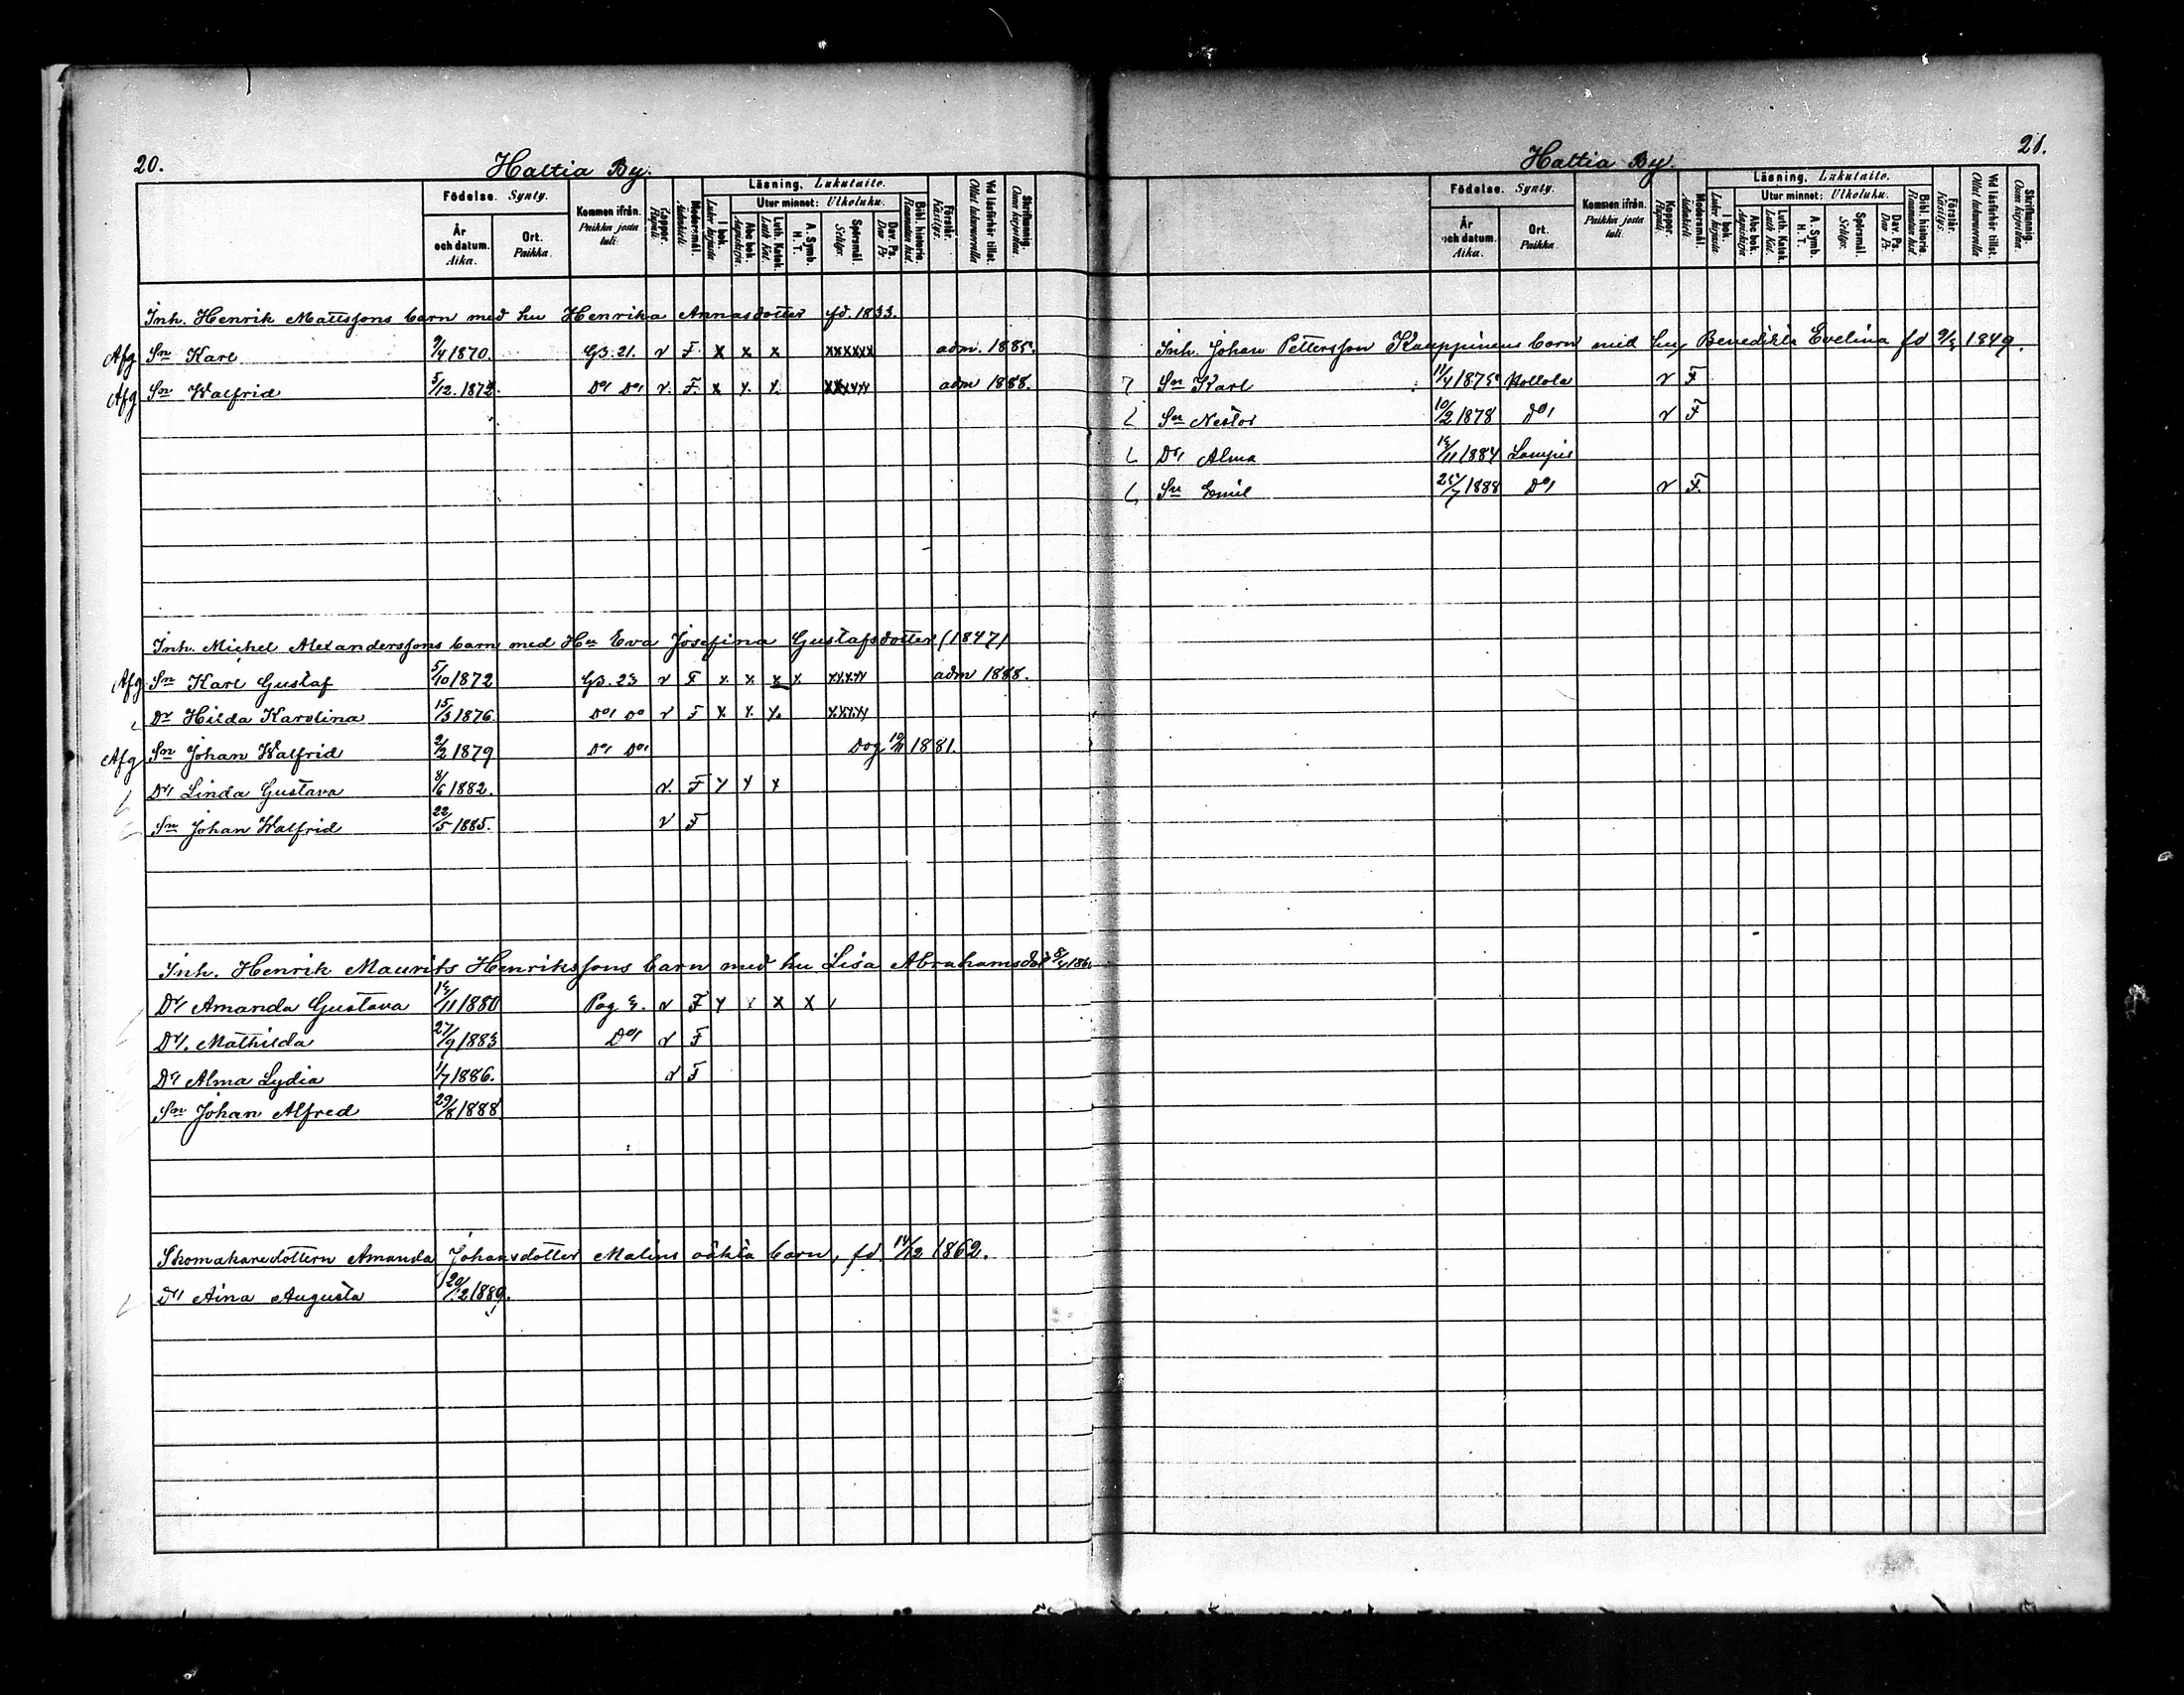 20.
Haltia By.
Födelse. Synty.
Kommen ifrån. Paikka josta tuli.
Koppor. Rupuli.
Modersmål. Äidinkieli.
Läsning. Lukutaito.
I bok. Lukee kirjasta
Utur minnet: Ulkoluku.
Abc bok. Aapiskirja.
Luth. Katek. Luth. Kat.
A. Symb. H. T.
Spörsmål. Selitys.
Dav. Ps. Dav. Ps.
Bibl. historie. Raamatun hist.
Förstår. Käsitys.
Vid läsförhör tillst. Ollut lukuvuorolla
Skriftkunnig. Osaa kirjoittaa.
År och datum. Aika.
Ort. Paikka.
Inh. Henrik Mattssons barn med hu Henrika Annasdotter fd. 1833.
Afg Sn Karl 9/4 1870. GB. 21. v F. x x x xxxxxx adm. 1885.
Afg Sn Walfrid 5/12. 1872. Do Do v. F. x x. x. xxxxxx adm 1888.
Inh. Michel Alexanderssons barn med Hu Eva Josefina Gustafsdotter (1847)
Afg Sn Karl Gustaf 5/10 1872 GB. 23 v F x x x x. xxxxx adm 1888.
Dr Hilda Karolina 15/3 1876. Do Do v F x x. x. xxxxx
Afg Sn Johan Walfrid 2/2 1879 Do Do Dog 10/11 1881.
Dr Linda Gustava 8/6 1882. v. F x x x
Sn Johan Walfrid 22/5 1885. v F
Inh. Henrik Maurits Henrikssons barn med hu Lisa Abrahamsdot
Dr Amanda Gustava /11 1880 Pag v F x x x x
Dr. Mathilda 27/9 1883 Do v F
Dr Alma Lydia 1/7 1886. v F
Sn Johan Alfred 29/8 1888
Skomakaredottern Amanda Johansdotter Malins oäkta barn, fd. 14/12 1862.
Dr Aina Augusta 20/12 1889.
21.
Haltia By.
Födelse. Synty.
Kommen ifrån. Paikka josta tuli.
Koppor. Rupuli.
Modersmål. Äidinkieli.
Läsning. Lukutaito.
I bok. Lukee kirjasta
Utur minnet: Ulkoluku.
Abc bok. Aapiskirja
Luth. Katek. Luth. Kat.
A. Symb. H. T.
Spörsmål. Selitys.
Dav. Ps. Dav. Ps.
Bibl. historie. Raamatun hist.
Förstår. Käsitys.
Vid läsförhör tillst. Ollut lukuvuorolla
Skriftkunnig. Osaa kirjoittaa.
År och datum. Aika.
Ort. Paikka.
Inh. Johan Pettersson Kauppinens barn med hu Benedikta Evelina fd 1849.
Sn Karl 11/4 1875 Hollola v F
Sn Nestor 10/2 1878 Do v F
Dr Alma /11 1884 Lampis
Sn Emil 25/7 1888 Do v F.